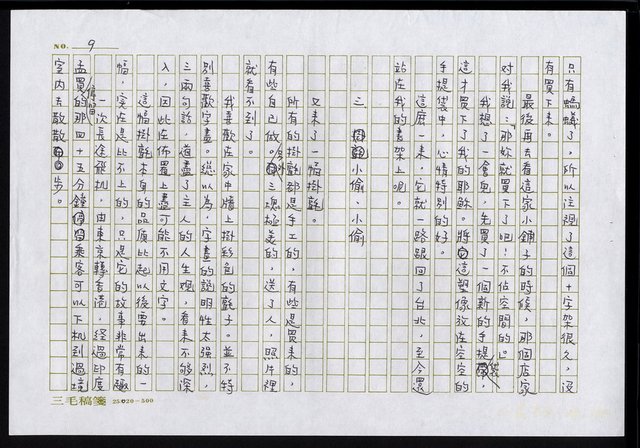 NO. 9
只有螞蟻了,所以注視了這個十字架很久,沒
有買下來。
最後再去看這家小舖子的時候,那個店家
對我說:那妳就買下了吧!不佔空間的。
我想了一會兒,先買了一個新的手提袋
這才買下了我的耶穌。將這塑像放在空空的
手提袋中,心情特別的好。
這麼一來,它就一路跟回了台北,至今還
站在我的書架上呢。
三、掛氈小偷、小偷
又來了一幅掛氈。
所有的掛氈都是手工的,有些是買來的,
有些自己做。另外三塊極美的,送了人,照片裡
就看不到了。
我喜歡在家中牆上掛彩色的氈子。並不特
別喜歡字畫,總以為,字畫的說明性太強烈,
三兩句話,道盡了主人的人生觀,看來不夠深
入,因此在佈置上盡可能不用文字。
這幅掛氈本身的品質比起以後要出來的一
幅,實在是比不上的,只是它的故事非常有趣
一次長途飛机,由東京轉香港,經過印度
孟買的那四十五分鐘停留乘客可以下机到過境
室內去散散步。
三毛稿箋 25×20=500